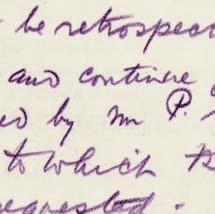 be retrospect
and continue
ed by Mr P.
to which th
equested.